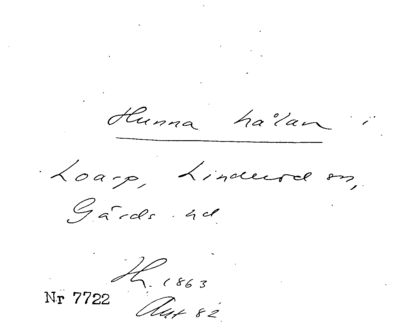 Hunna hålan i
Loarp, Linderöd sn,
Gärds hd
H. 1863
Nr 7722
Aut 82